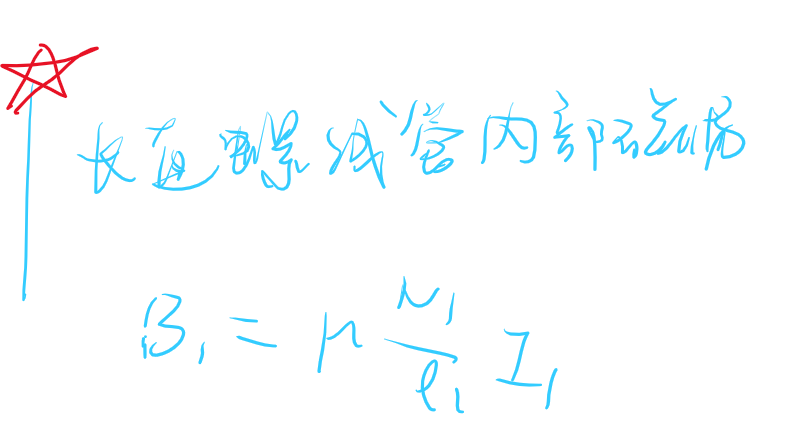 长直螺线管内部磁场
B₁ = μ N₁/ℓ₁ I₁